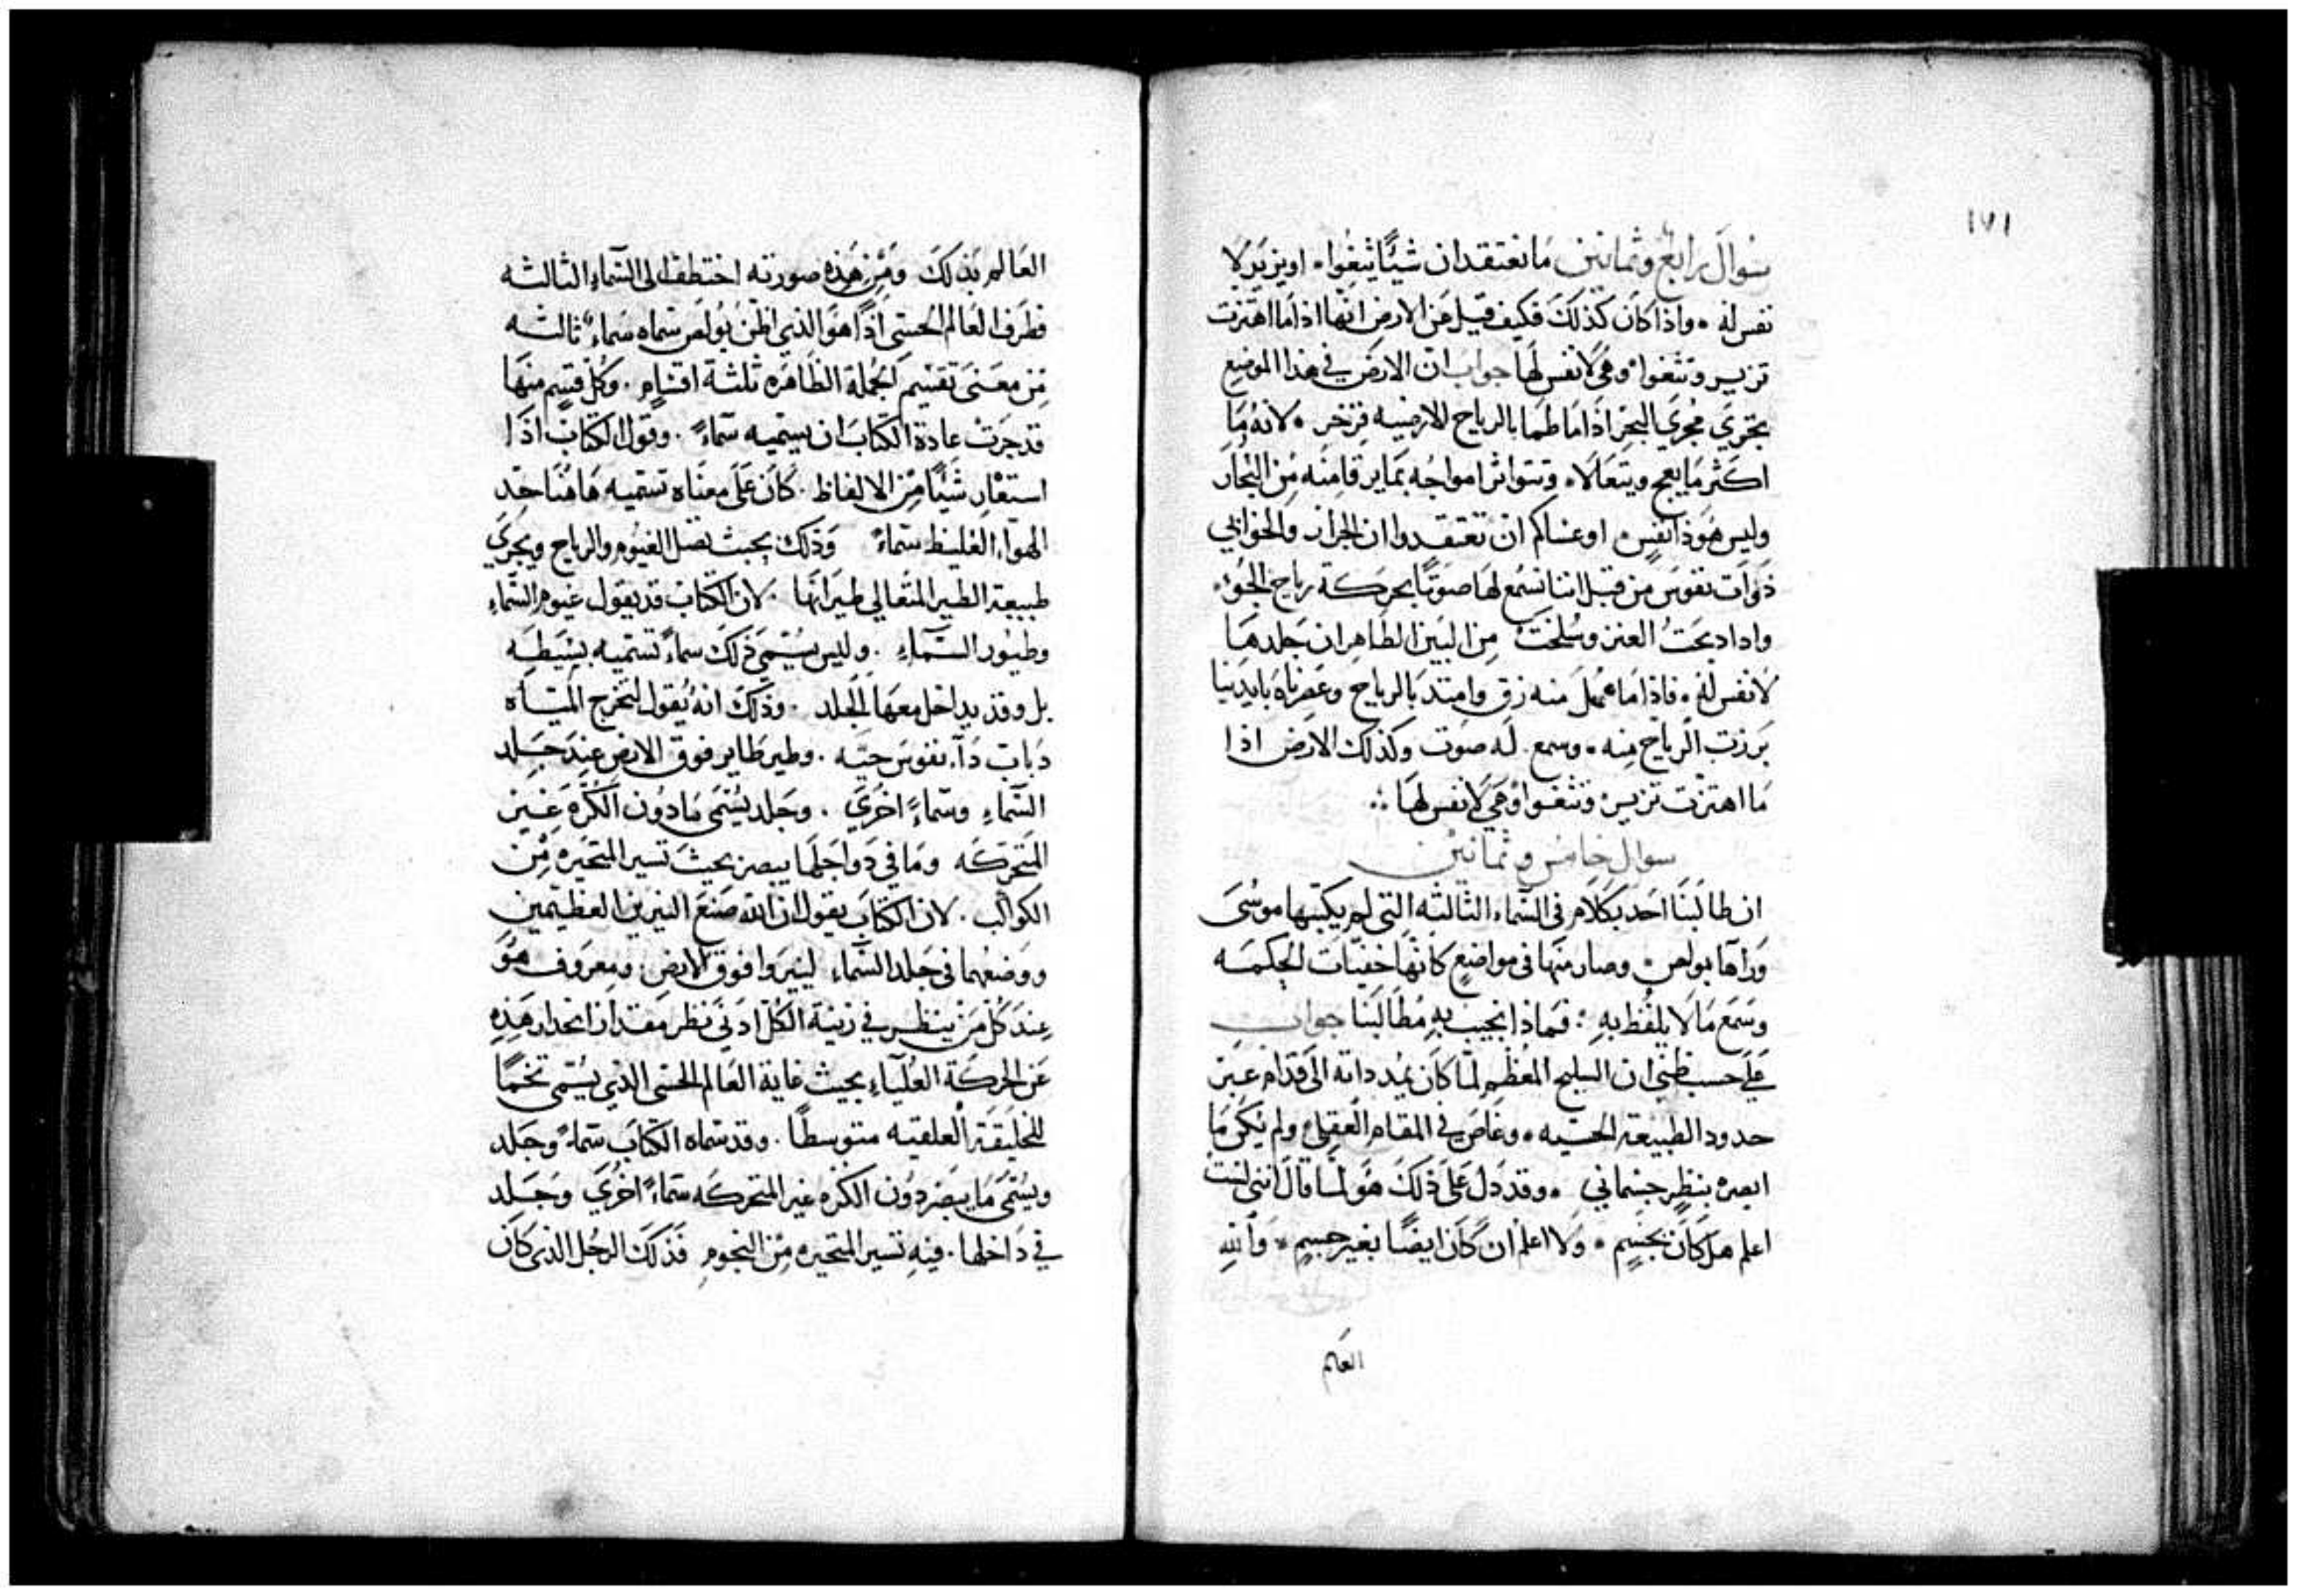 ١٧١
سُوال رابع وثمانين ما نعتقد ان شيًا يثغوا او يزير لا
نفس له ٠ واذا كان كذلك فكيف قيل عن الارض انها اذا ما اهتزت
تزير وتثغوا وهي لا نفس لها جواب ان الارض في هذا الموضع
تجري مجري البحر اذا ما طما بالرياح الارضيه فزخر ٠ لانه ما
اكثر ما يعج ويتعالا ٠ وتتواثر امواجه بما يرقا منه من البخار
وليس هو ذا نفس ٠ او عساكم ان تعتقدوا ان الجرار والخوابي
ذوات نفوس من قبل اننا نسمع لها صوتًا بحركة رياح الجو ٠
واذا ذبحت العنز وسُلخت من البين الظاهر ان جلدها
لا نفس له ٠ فاذا ما عمل منه زق وامتد بالرياح وعصرناه بايدينا
برزت الرياح منه ٠ وسمع له صوت وكذلك الارض اذا
ما اهتزت تزير وتثغوا وهي لا نفس لها ⁘
سوال خامس وثمانين
ان طالبنا احد بكلام في السماء الثالثه التي لم يكتبها موسى
ورآها بولص ٠ وصار منها في مواضع كانها خفيات الحكمه
وسمع ما لا يلفظ به : فماذا نجيب به مُطالبنا جواب
على حسب ظني ان السليح المعظم لما كان يمد ذاته الى قدام عبر
حدود الطبيعة الحسيه ٠ وغاص في المقام العقلي ولم يكن ما
ابصره بنظر جسماني ٠ وقد دل على ذلك هو لما قال انني لست
اعلم هل كان بجسم ٠ ولا اعلم ان كان ايضًا بغير جسم ٠ والله
العالم
العالم بذلك ومن هذه صورته اختطف الى السماء الثالثه
فطرف العالم الحسي اذًا هو الذي اظن بولص سماه سماءً ثالثه
من معنى تقسيم الجملة الظاهره ثلثة اقسام ٠ وكل قسم منها
قد جرت عادة الكتاب ان يسميه سماءً ٠ وقول الكتاب اذا
استعار شيًا من الالفاظ ٠ كان على معناه تسميه هاهنا حد
الهواء الغليظ سماءً وذلك بحيث تصل الغيوم والرياح ويجري
طبيعة الطير المتعالي طيرانها ٠ لان الكتاب قد يقول غيوم السماء
وطيور السماء ٠ وليس يُسمي ذلك سماءً تسميه بسيطه
بل وقد يداخل معها الجلد ٠ وذلك انه يقول لتخرج المياه
دبابت ذا نفوس حيه ٠ وطير طاير فوق الارض عند جلد
السماء وسماءً اخري ٠ وجلد يُسمى ما دون الكره غير
المتحركه وما في دواخلها يبصر بحيث تسير المتحيره من
الكواكب ٠ لان الكتاب يقول ان الله صنع النيرين العظيمين
ووضعهما في جلد السماء لينيروا فوق الارض ومعروف هو
عند كل من ينظر في زينة الكل ادنى نظر مقدار انحدار هذه
عن الحركة العلياء بحيث غاية العالم الحسي الذي يُسمى تخمًا
للخليقة العقليه متوسطًا ٠ وقد سماه الكتاب سماءً وجلد
ويُسمى ما يبصر دون الكره غير المتحركه سماءً اخري وجلد
في داخلها ٠ فيه تسير المتحيره من النجوم فذلك الرجل الذي كان